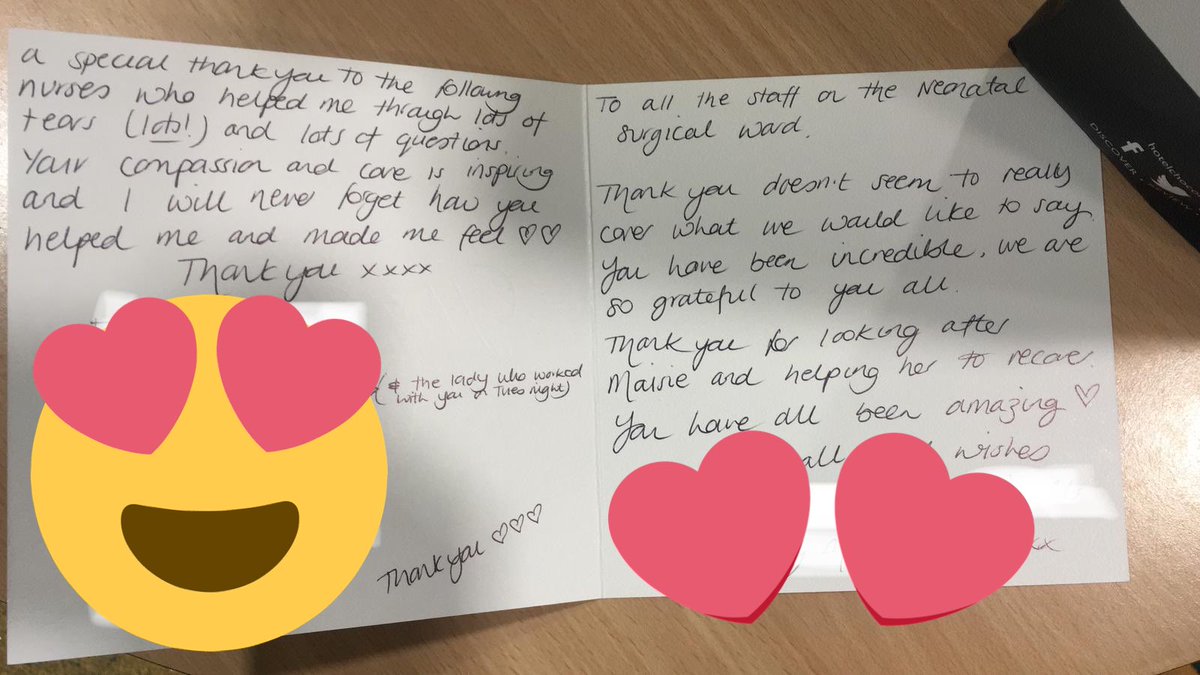 a special thank you to the following
nurses who helped me through lots of
tears (lots!) and lots of questions.
Your compassion and care is inspiring
and I will never forget how you
helped me and made me feel ♡♡
Thank you xxxx
(& the lady who worked
with you on Tues night)
Thank you ♡♡♡
To all the staff on the Neonatal
surgical ward.
Thank you doesn't seem to really
cover what we would like to say.
You have been incredible, we are
so grateful to you all.
Thank you for looking after
Mairie and helping her to recover.
You have all been amazing ♡
all wishes
xx
DISCOVER